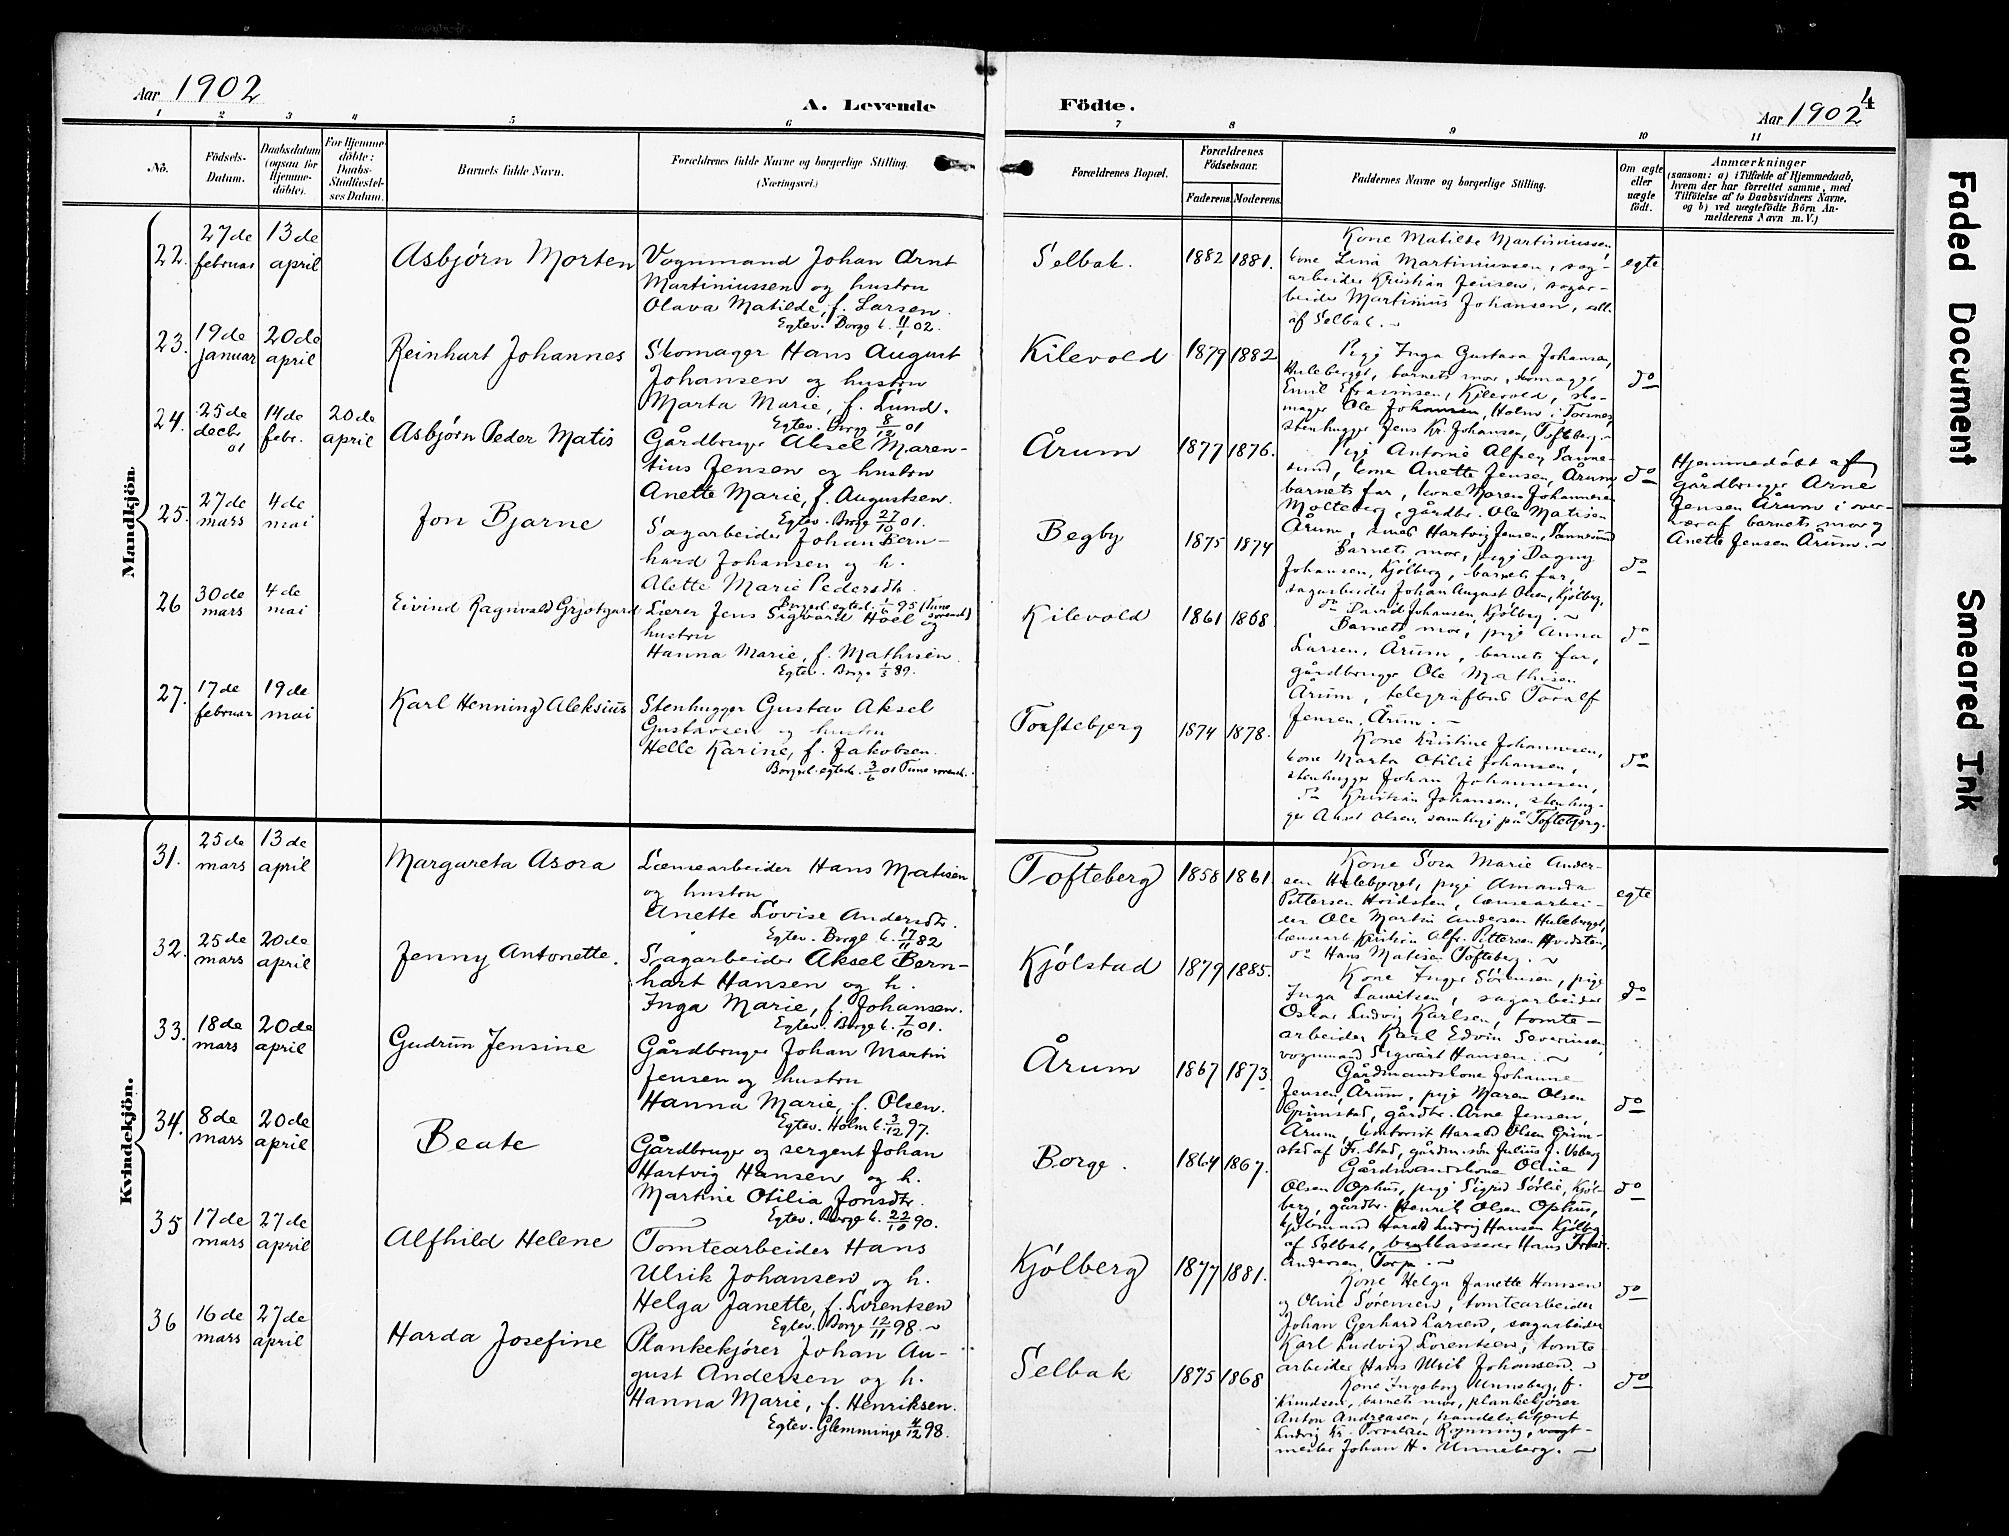 Aar 1902
A. Levende
Födte.
Aar 1902
4
1 2 3 4 5 6 7 8 9 10 11
No.
Födsels-
Datum.
Daabsdatum
(ogsaa for
Hjemme-
döbte).
For Hjemme-
döbte:
Daabs-
Stadfæstel-
ses Datum.
Barnets fulde Navn.
Forældrenes fulde Navne og borgerlige Stilling.
(Næringsvei.)
Forældrenes Bopæl.
Forældrenes
Födselsaar.
Faderens. Moderens.
Faddernes Navne og borgerlige Stilling.
Om ægte
eller
uægte
født.
Anmærkninger
(saasom: a) i Tilfælde af Hjemmedaab,
hvem der har forrettet samme, med
Tilföielse af to Daabsvidners Navne,
og b) ved uægtefödte Börn An-
melderens Navn m. V.)
Mandkjön.
22.
27de
februar
13de
april
Asbjørn Morten
Vognmand Johan Arnt
Martiniussen og hustru
Olava Matilde, f. Larsen.
Egtev. Borge k. 11/1 02.
Selbak.
1882 1881.
Kone Matilde Martiniussen,
kone Lina Martiniussen, sag-
arbeider Kristian Jensen, sagar-
beider Martinius Johansen, alle
af Selbak.
egte
23.
19de
januar
20de
april
Reinhart Johannes
Skomager Hans August
Johansen og hustru
Marta Marie, f. Lund.
Egtev. Borge 8/12 01
Kilevold
1879 1882
Pige Inga Gustava Johansen,
Huleberget, barnets mor, skomager
Emil Efraimsen, Kilevold, sko-
mager Ole Johansen, Holm i Torsnes,
stenhugger Jens Kr. Johansen, Tofteberg.
do
24.
25de
decbr.
01
14de
febr.
20de
april
Asbjørn Peder Matis
Gårdbruger Aksel Maren-
tius Jensen og hustru
Anette Marie, f. Augustsen.
Egtev. Borge 27/10 01.
Årum
1877 1876.
Pige Antonie Alfsen Sanne-
sund, kone Anette Jensen, Årum
barnets far, kone Maren Johannesen
Molteberg, gårdbr. Ole Matisen
Årum, smed Hartvig Jensen, Sannesund
do
Hjemmedøbt af
gårdbruger Arne
Jensen Årum i over-
vær af barnets mor og
Anette Jensen Årum.
25.
27de
mars
4de
mai
Jon Bjarne
Sagarbeider Johan Bern-
hard Johansen og h.
Alette Marie Pedersdtr.
Begby
1875 1874
Barnets mor, pige Dagny
Johansen, Kjølberg, barnets far,
sagarbeider Johan August Olsen, Kjølberg,
do David Johansen, Kjølberg.
do
26
30de
mars
4de
mai
Eivind Ragnvald Grjotgard
Lærer Jens Sigvard Hoel og
hustru
Hanna Marie, f. Mathisen.
Egtev. Borge 1/5 89.
Kilevold
1861 1868.
Barnets mor, pige Anna
Larsen, Årum, barnets far,
gårdbruger Ole Mathisen
Årum, telegrafbud Toralf
Jensen, Årum.
do
27.
17de
februar
19de
mai
Karl Henning Aleksius
Stenhugger Gustav Aksel
Gustavsen og hustru
Helle Karine, f. Jakobsen.
Borgerl. egtev. 3/6 01 Tune sorensk.
Toftebjerg
1874 1878.
Kone Kristine Johannesen,
kone Marta Otilie Johansen,
stenhugger Johan Johannesen,
do Kristian Johansen, stenhug-
ger Aksel Olsen, samtlige på Toftebjerg.
do
Kvindekjön.
31.
25de
mars
13de
april
Margareta Asora
Lænsearbeider Hans Matisen
og hustru
Anette Lovise Andersdtr.
Egtev. Borge k. 17/11 82
Tofteberg
1858 1861
Kone Sora Marie Ander-
sen Huleberget, pige Amanda
Pettersen Hvidsten, lænsearbei-
der Ole Martin Andersen Huleberget,
lænsearb. Kristian Alfr. Pettersen Hvidsten,
do Hans Matisen Tofteberg.
egte
32.
25de
mars
20de
april
Jenny Antonette.
Sagarbeider Aksel Bern-
hart Hansen og h.
Inga Marie, f. Johansen.
Egtev. Borge k. 7/10 01.
Kjølstad
1879 1885.
Kone Inger Sørensen, pige
Inga Lauritsen, sagarbeider
Oskar Ludvig Karlsen, tomte-
arbeider Karl Edvin Severinsen,
vognmand Sigvart Hansen.
do
33.
18de
mars
20de
april
Gudrun Jensine
Gårdbruger Johan Martin
Jensen og hustru
Hanna Marie, f. Olsen.
Egtev. Holm k. 3/12 97.
Årum
1867 1873.
Gårdmandskone Johanne
Jensen, Årum, pige Maren Olsen
Grimstad, gårdbr. Arne Jensen,
Årum, kontorist Harald Olsen Grim-
stad af Fr.stad, gårdm.søn Julius J. Veberg
do
34.
8de
mars
20de
april
Beate
Gårdbruger og sergent Johan
Hartvig Hansen og h.
Martine Otilia Jonsdtr.
Egtev. Borge k. 22/10 90.
Borge.
1864 1867.
Gårdmandskone Oline
Olsen Ophus, pige Sigrid Sørlie, Kjøl-
berg, gårdbr. Henrik Olsen Ophus,
Harald Ludvig Hansen Kjølberg
af Selbak, Hans
Andersen, Torp.
do
35
17de
mars
27de
april
Alfhild Helene
Tomtearbeider Hans
Ulrik Johansen og h.
Helga Janette, f. Lorentsen
Egtev. Borge 12/11 98.
Kjølberg
1877 1881.
Kone Helga Janette Hansen
og Oline Sørensen, tomtearbeider
Johan Gerhard Larsen, sagarbeider
Karl Ludvig Lorentsen, tomte-
arbeider Hans Ulrik Johanssen.
do
36
16de
mars
27de
april
Harda Josefine
Plankekjører Johan Au-
gust Andersen og h.
Hanna Marie, f. Henriksen.
Egtev. Glemminge 4/12 98.
Selbak
1875 1868
Kone Ingeborg Unneberg, f.
Knudsen, barnets mor, plankekjører
Anton Andreasen, handelsbetjent
Ludvig Kr. Torvaldsen Rønning, vagt-
mester Johan H. Unneberg.
do
Faded Document
Smeared Ink